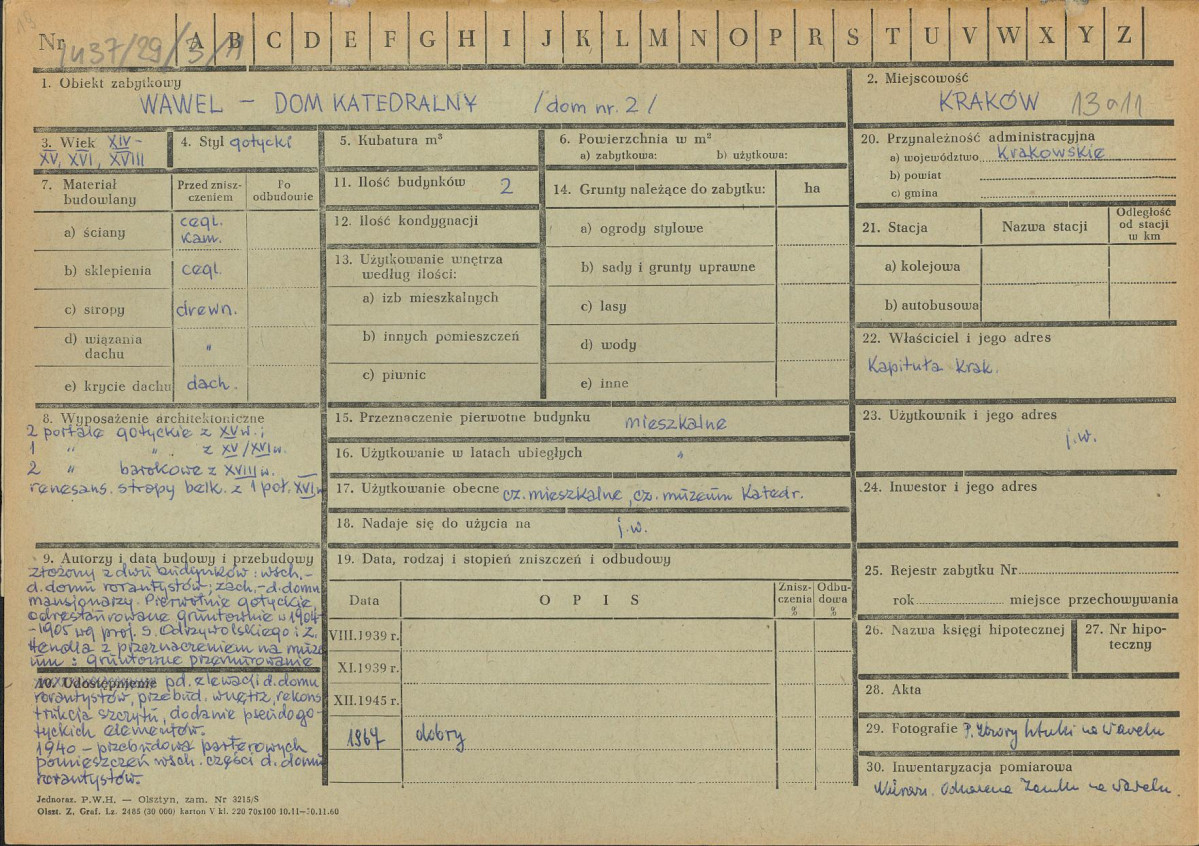 Nr 1437/29/3/11 A B C D E F G H I J K L M N O P R S T U V W X Y Z
1. Obiekt zabytkowy
WAWEL – DOM KATEDRALNY /dom nr. 2/
2. Miejscowość
KRAKÓW 13a11
3. Wiek XIV-
XV, XVI, XVIII
4. Styl gotycki
5. Kubatura m³
6. Powierzchnia w m²
a) zabytkowa: b) użytkowa:
20. Przynależność administracyjna
a) województwo Krakowskie
b) powiat
c) gmina
7. Materiał
budowlany
Przed znisz-
czeniem
Po
odbudowie
a) ściany cegl.
Kam.
b) sklepienia cegl.
c) stropy drewn.
d) wiązania
dachu "
e) krycie dachu dach.
11. Ilość budynków 2
12. Ilość kondygnacji
13. Użytkowanie wnętrza
według ilości:
a) izb mieszkalnych
b) innych pomieszczeń
c) piwnic
14. Grunty należące do zabytku: ha
a) ogrody stylowe
b) sady i grunty uprawne
c) lasy
d) wody
e) inne
21. Stacja Nazwa stacji
Odległość
od stacji
w km
a) kolejowa
b) autobusowa
22. Właściciel i jego adres
Kapituła Krak.
8. Wyposażenie architektoniczne
2 portale gotyckie z XV w.;
1 " " z XV/XVI w.
2 " barokowe z XVIII w.
renesans. stropy belk. z 1 poł. XVI w
15. Przeznaczenie pierwotne budynku mieszkalne
16. Użytkowanie w latach ubiegłych "
17. Użytkowanie obecne cz. mieszkalne, cz. muzeum Katedr.
18. Nadaje się do użycia na j.w.
23. Użytkownik i jego adres
j.w.
24. Inwestor i jego adres
9. Autorzy i data budowy i przebudowy
złożony z dwu budynków: wsch.-
d. domu rorantystów; zach.- d. domu
mansjonarzy. Pierwotnie gotyckie
odrestaurowane gruntownie w 1904-
-1905 wg proj. S. Odrzywolskiego i Z.
Hendla z przeznaczeniem na muze
um: gruntowne przemurowanie
10. Udostępnienie pd. elewacji d. domu
rorantystów, przebud. wnętrz, rekons
trukcja szczytu, dodanie pseudogo-
tyckich elementów.
1940 – przebudowa parterowych
pomieszczeń wsch. części d. domu
rorantystów.
19. Data, rodzaj i stopień zniszczeń i odbudowy
Data OPIS
Znisz-
czenia
%
Odbu-
dowa
%
VIII.1939 r.
XI.1939 r.
XII.1945 r.
1967 dobry
25. Rejestr zabytku Nr
rok miejsce przechowywania
26. Nazwa księgi hipotecznej
27. Nr hipo-
teczny
28. Akta
29. Fotografie P. Zbiory Sztuki na Wawelu
30. Inwentaryzacja pomiarowa
Kierown. Odnowienia Zamku na Wawelu.
Jednoraz. P.W.H. — Olsztyn, zam. Nr 3215/S
Olszt. Z. Graf. Lz. 2485 (30 000) karton V kl. 220 70x100 10.11—30.11.60